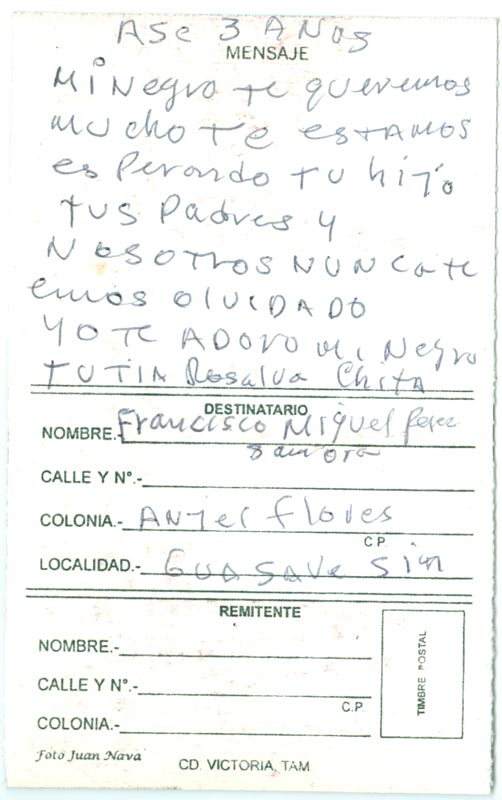 ASE 3 AÑOS
MENSAJE
Mi Negro te queremos
mucho te estamos
es perando tu hijo
tus padres y
NOSOTROS NUNCa te
emos OLVIDADO
YO TE ADORO Mi Negro
TU TIA Rosalva Chita
DESTINATARIO
NOMBRE.- Francisco Miguel Perez
samora
CALLE Y N°.-
COLONIA.- ANJel flores
C.P.
LOCALIDAD.- GUASAVe Sin
REMITENTE
NOMBRE.-
CALLE Y N°.-
C.P.
COLONIA.-
TIMBRE POSTAL
Foto Juan Nava
CD. VICTORIA, TAM